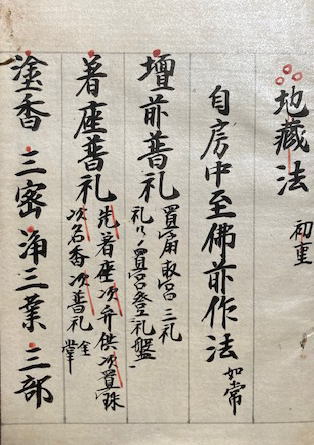 地蔵法 初重
自房中至佛前作法 如常
壇前普礼 置扇取 三礼
礼了置 登礼盤
着座普礼 先着座次弁供次置珠
次名香次普礼 金掌
塗香 三密 浄三業 三部